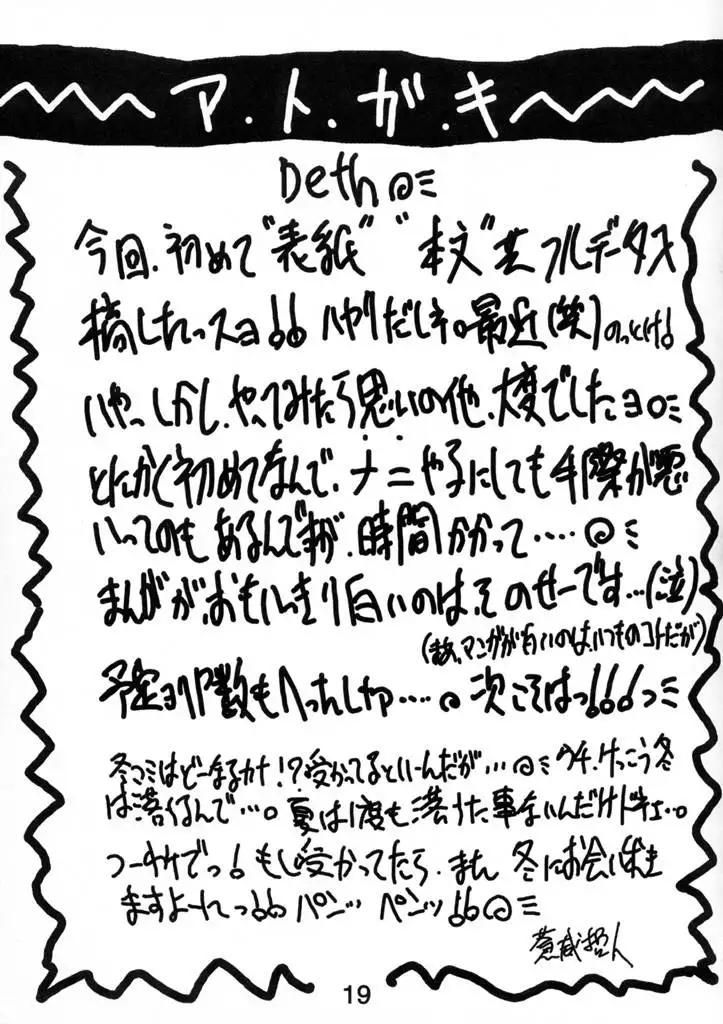 ア・ト・ガ・キ
Deth
今回、初めて"表紙" "本文"共フルデータ入
稿したっスョ!! ハヤリだしネ。最近(笑)のっとけ!
いやっしかし、やってみたら思いの他、大変でしたョ
とにかく初めてなんで、ナニやるにしても手際が悪
いってのもあるんですが、時間かかって‥‥
まんがが、おもいっきり白いのは、そのせーです…(泣)
(まぁ、マンガが白いのは、いつものコトだが)
予定よりP数もへっちゃし‥‥ 次こそはっ!!!っ
冬コミはどーなるカナ!?受かってるといーんだが… ウチ、けっこう冬
は落ちるんで…。夏は1度も落ちた事ないんだけドネェ…。
つーわけでっ!もし受かってたら、また 冬にお会いしき
ますよーにっ!! パンッ パンッ!!
蒼威哲人
19